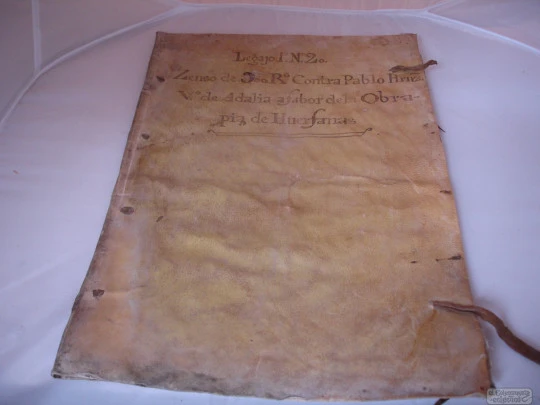 Legajo 1. N. 20
Zenso de 300 R.s Contra Pablo
V.o de Adalia afabor de la Obra-
pia de Huerfanas